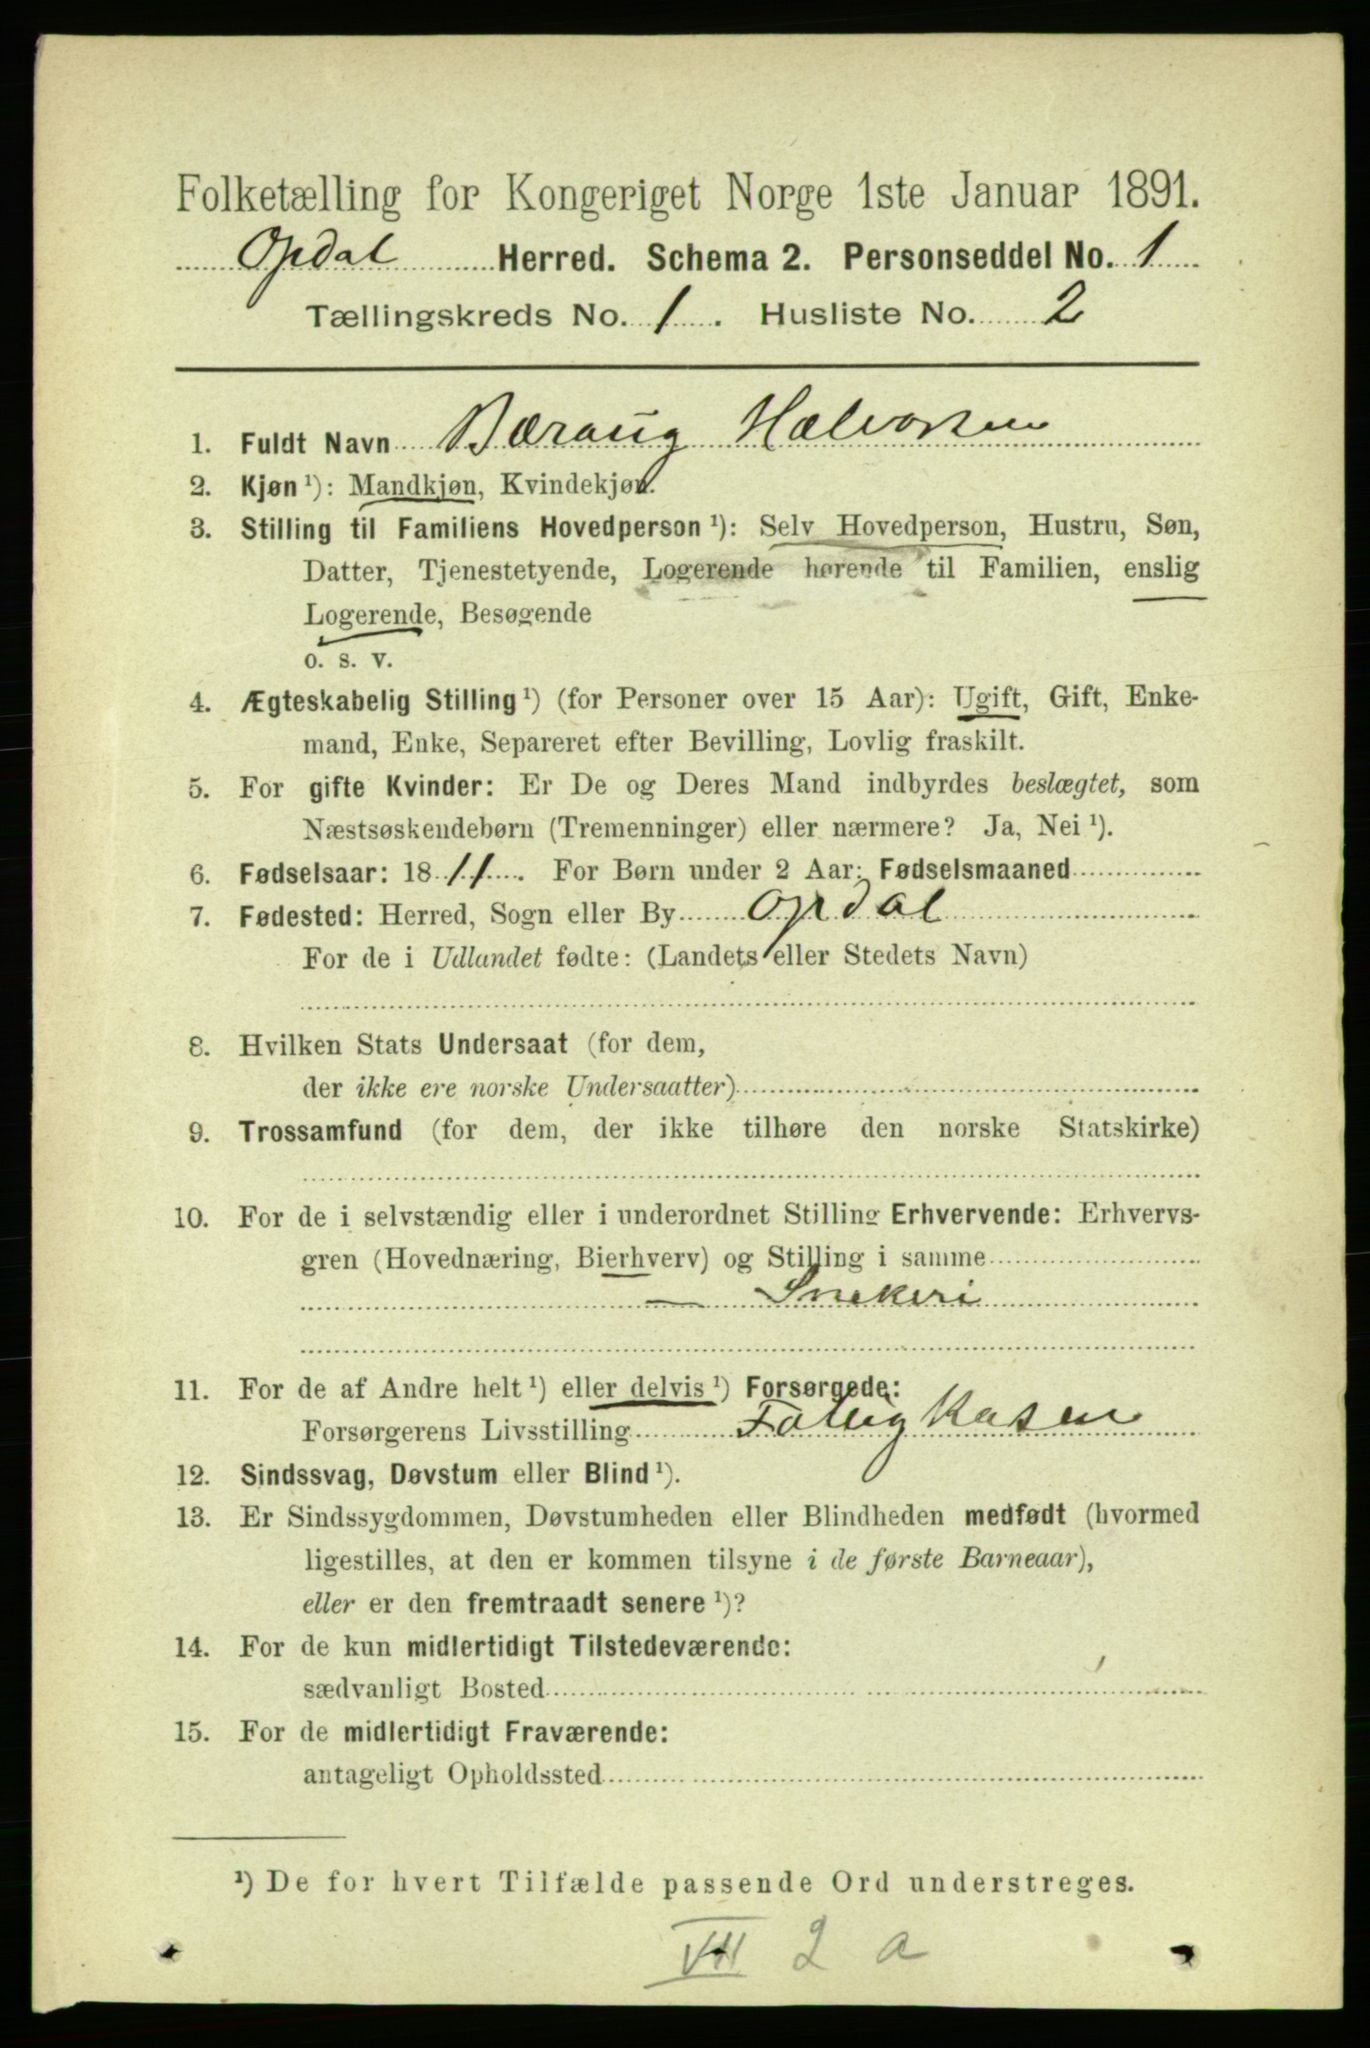 Folketælling for Kongeriget Norge 1ste Januar 1891.
Opdal Herred. Schema 2. Personseddel No. 1
Tællingskreds No. 1. Husliste No. 2
1. Fuldt Navn Halvorsen
2. Kjøn ¹): Mandkjøn, Kvindekjøn.
3. Stilling til Familiens Hovedperson ¹): Selv Hovedperson, Hustru, Søn,
Datter, Tjenestetyende, Logerende hørende til Familien, enslig
Logerende, Besøgende
o. s. v.
4. Ægteskabelig Stilling ¹) (for Personer over 15 Aar): Ugift, Gift, Enke-
mand, Enke, Separeret efter Bevilling, Lovlig fraskilt.
5. For gifte Kvinder: Er De og Deres Mand indbyrdes beslægtet, som
Næstsøskendebørn (Tremenninger) eller nærmere? Ja, Nei ¹).
6. Fødselsaar: 1811. For Børn under 2 Aar: Fødselsmaaned
7. Fødested: Herred, Sogn eller By Opdal
For de i Udlandet fødte: (Landets eller Stedets Navn)
8. Hvilken Stats Undersaat (for dem,
der ikke ere norske Undersaatter)
9. Trossamfund (for dem, der ikke tilhøre den norske Statskirke)
10. For de i selvstændig eller i underordnet Stilling Erhvervende: Erhvervs-
gren (Hovednæring, Bierhverv) og Stilling i samme
— Snekeri
11. For de af Andre helt ¹) eller delvis ¹) Forsørgede:
Forsørgerens Livsstilling Fattigkasen
12. Sindssvag, Døvstum eller Blind ¹).
13. Er Sindssygdommen, Døvstumheden eller Blindheden medfødt (hvormed
ligestilles, at den er kommen tilsyne i de første Barneaar),
eller er den fremtraadt senere ¹)?
14. For de kun midlertidigt Tilstedeværende:
sædvanligt Bosted
15. For de midlertidigt Fraværende:
antageligt Opholdssted
¹) De for hvert Tilfælde passende Ord understreges.
VII 2 a